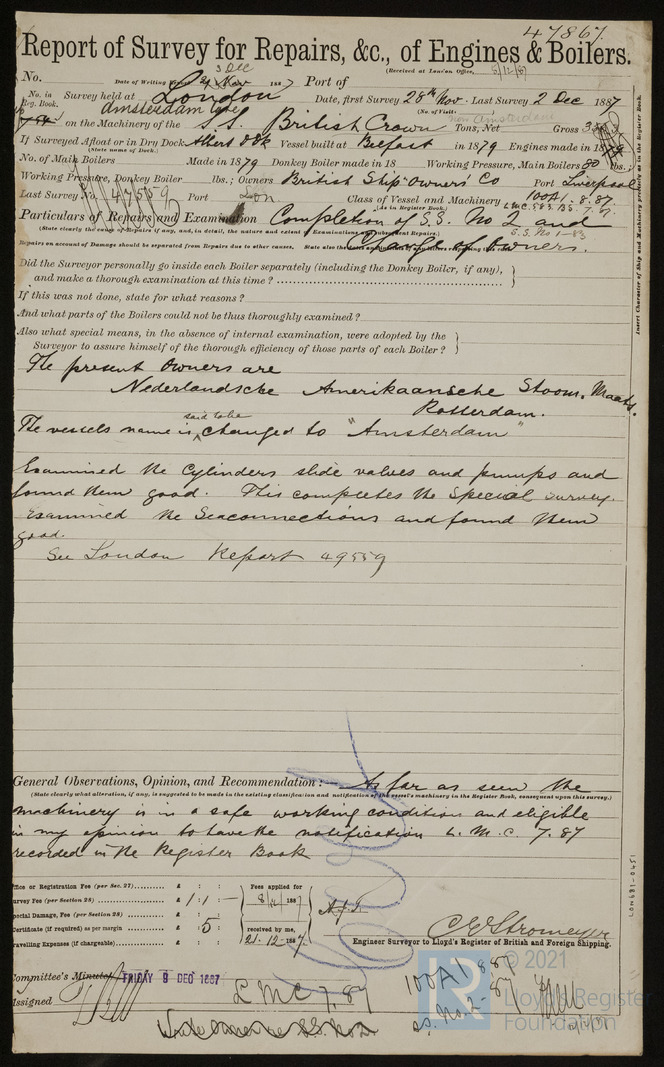 47867.
Report of Survey for Repairs, &c., of Engines & Boilers.
(Received at London Office, 5/12/87
No. Date of Writing Report 3 Dec 1887 Port of
No. in Reg. Book. Survey held at London Date, first Survey 28th Nov. Last Survey 2 Dec 1887
(No. of Visits
Amsterdam late non Amsterdam
on the Machinery of the S.S. British Crown Tons, Net Gross
If Surveyed Afloat or in Dry Dock Albert Dk Vessel built at Belfast in 1879 Engines made in 1879
(State name of Dock.)
No. of Main Boilers Made in 1879 Donkey Boiler made in 18 Working Pressure, Main Boilers 80 lbs.;
Working Pressure, Donkey Boiler lbs.; Owners British Ship Owners' Co Port Liverpool
Last Survey No. 47559 Port Lon Class of Vessel and Machinery 100A1. 8.87.
(As in Register Book.) L.M.C. 5.83. BS. 7.87.
Particulars of Repairs and Examination Completion of S.S. No 2 and
S.S. No 1-83
(State clearly the cause of Repairs if any, and, in detail, the nature and extent of Examinations and subsequent Repairs.)
Change of Owners.
Repairs on account of Damage should be separated from Repairs due to other causes. State also the
Did the Surveyor personally go inside each Boiler separately (including the Donkey Boiler, if any),
and make a thorough examination at this time?
If this was not done, state for what reasons?
And what parts of the Boilers could not be thus thoroughly examined?
Also what special means, in the absence of internal examination, were adopted by the
Surveyor to assure himself of the thorough efficiency of those parts of each Boiler?
The present Owners are
Nederlandsche Amerikaansche Stoom. Maats.
Rotterdam.
said to be
The vessels name is changed to "Amsterdam"
Examined the Cylinders slide valves and pumps and
found them good. This completes the Special Survey.
Examined the Seaconnections and found them
good.
See London Report 49559
General Observations, Opinion, and Recommendation:— As far as seen the
(State clearly what alteration, if any, is suggested to be made in the existing classification and notification of the vessel's machinery in the Register Book, consequent upon this survey.)
machinery is in a safe working condition and eligible
in my opinion to have the notification L.M.C. 7.87
recorded in the Register Book
Office or Registration Fee (per Sec. 27) £ : :
Survey Fee (per Section 28) £ 1 : 1 : —
Special Damage, Fee (per Section 28) £ : :
Certificate (if required) as per margin £ : 5 :
Travelling Expenses (if chargeable) £ : :
Fees applied for
8/12/1887
received by me,
21.12.1887.
C E Stromeyer
Engineer Surveyor to Lloyd's Register of British and Foreign Shipping.
Committee's Minute FRIDAY 9 DEC 1887
Assigned LMC 7.87
100A1 8.87
SS. No. 2-87
Insert Character of Ship and Machinery precisely as in the Register Book.
LON681-0451
© 2021
Lloyd's Register
Foundation